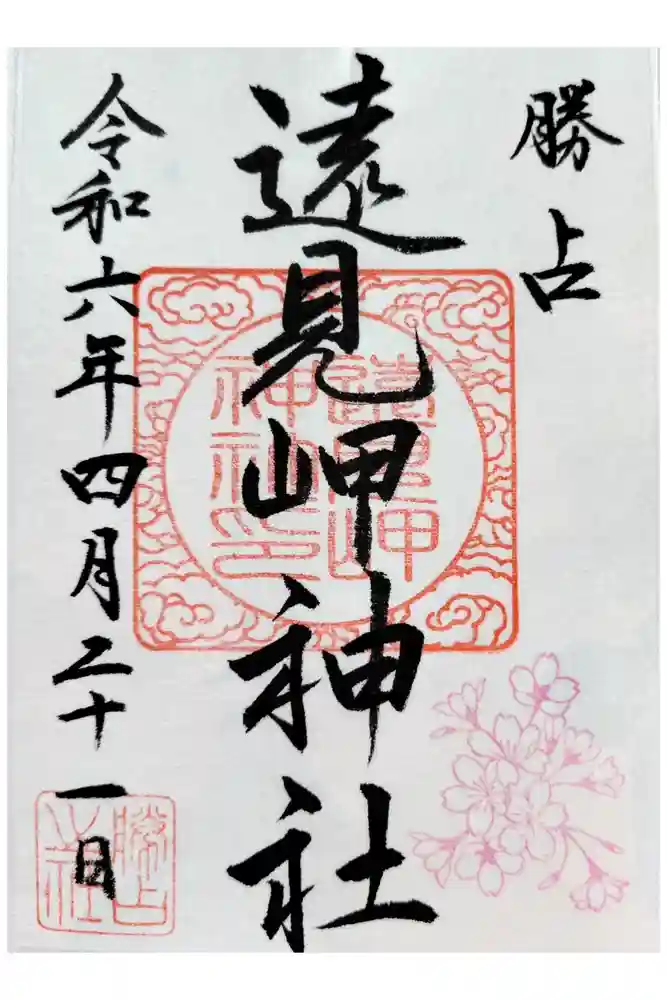 勝占
遠見岬神社
令和六年四月二十一日
遠見岬神社印
勝占之社